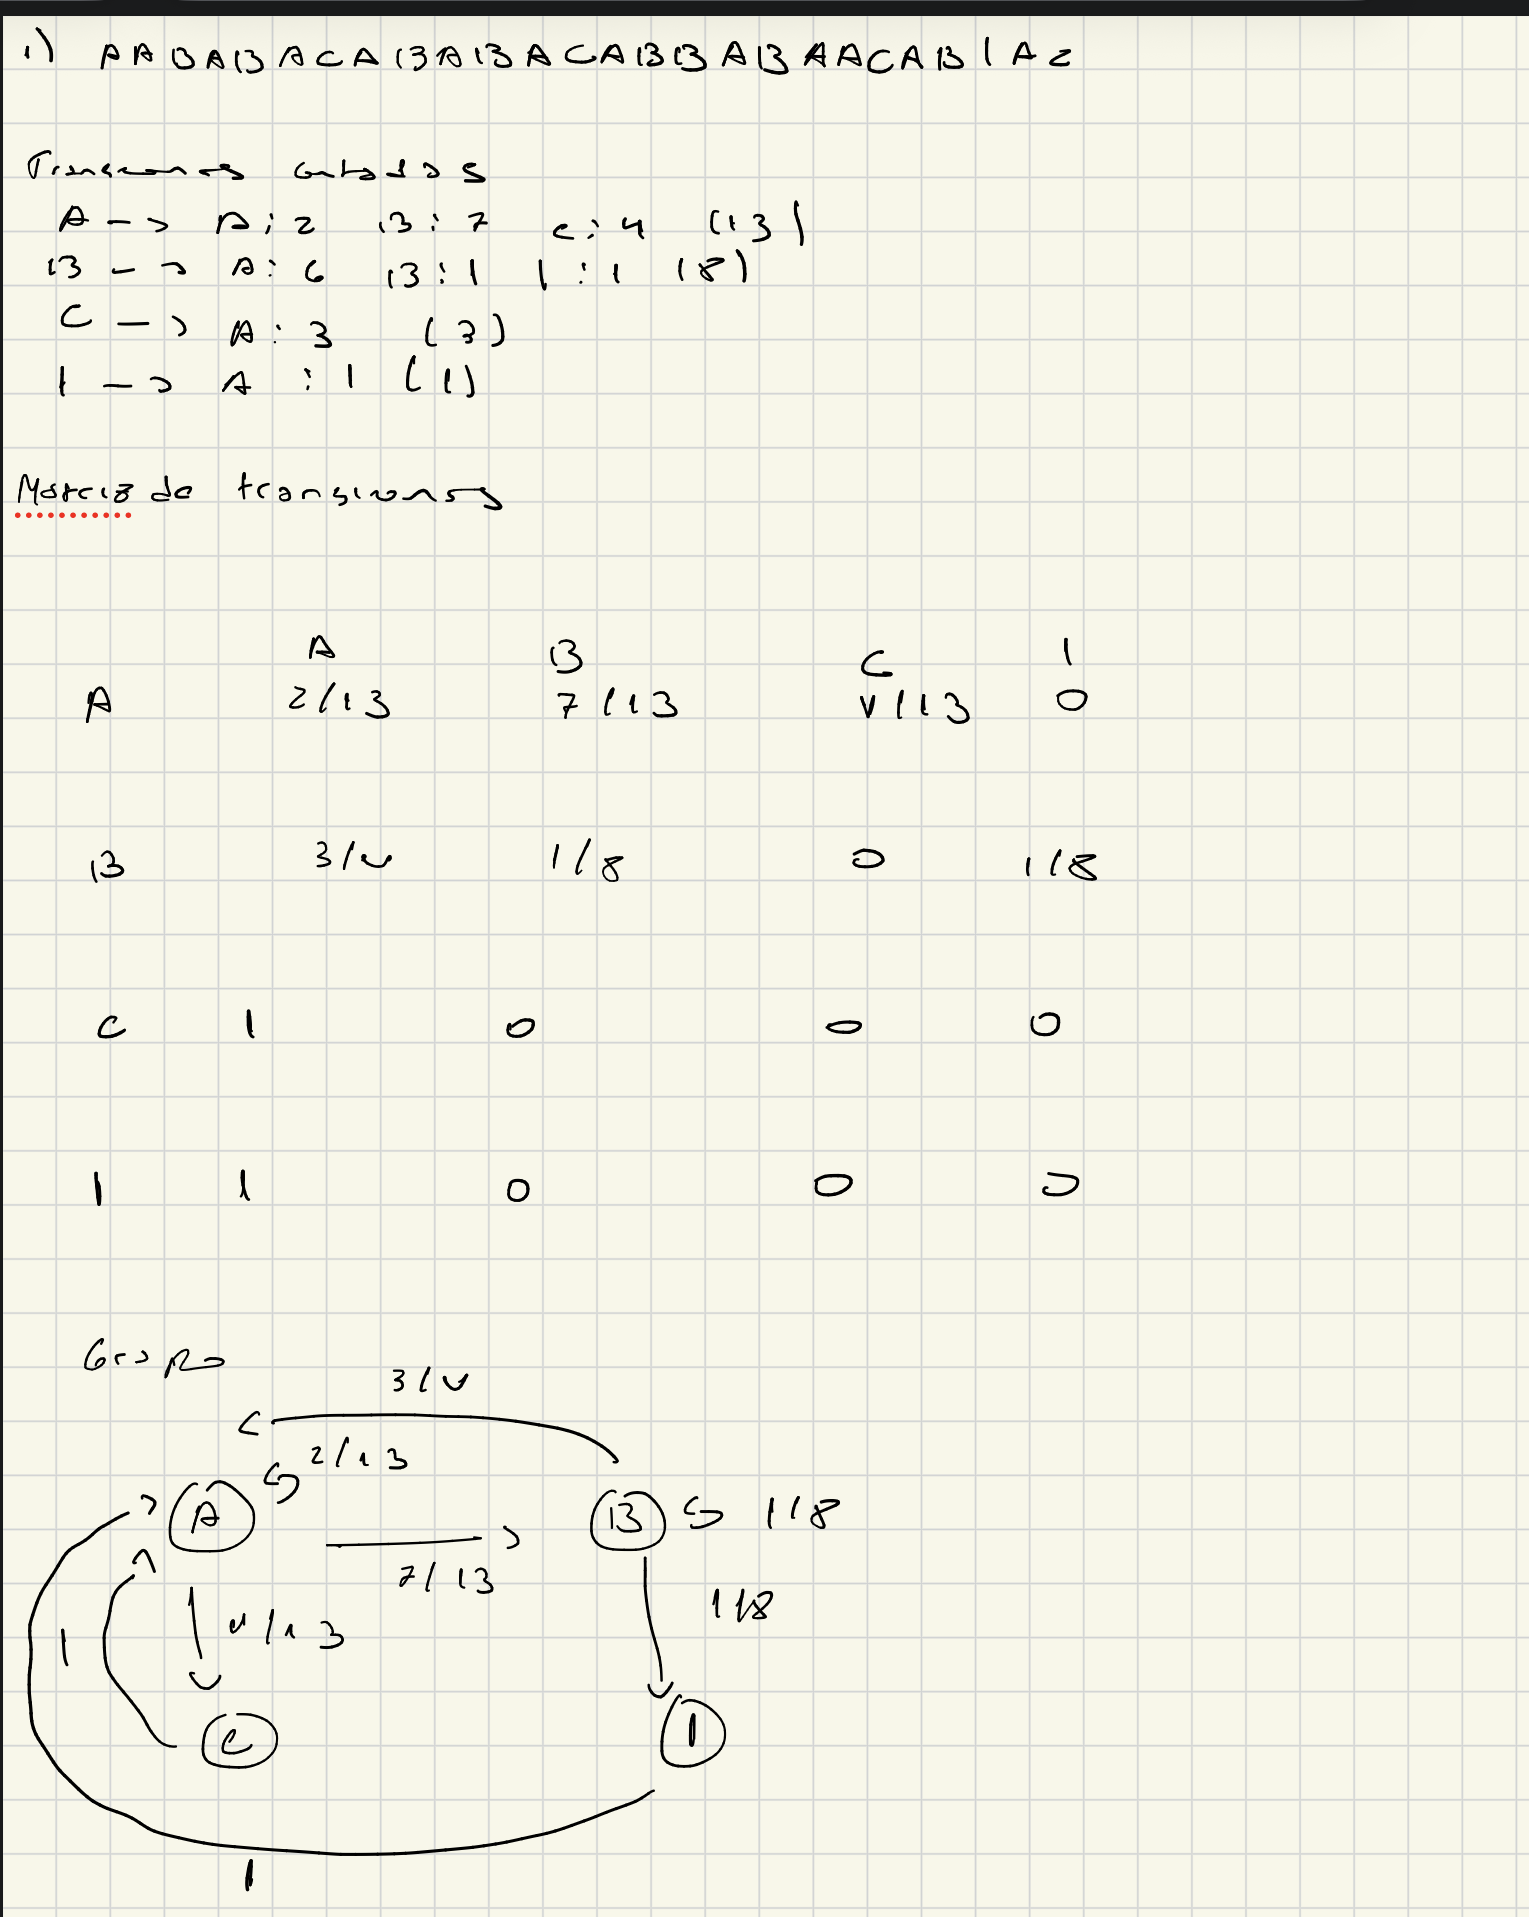 1) AABABACABABACABBABAACAB1AC
Transiciones contados
A -> A: 2 B: 7 C: 4 (13)
B -> A: 6 B: 1 1: 1 (8)
C -> A: 3 (3)
1 -> A: 1 (1)
Matriz de transiciones
A B C 1
A 2/13 7/13 4/13 0
B 3/4 1/8 0 1/8
C 1 0 0 0
1 1 0 0 0
Grapo
3/4
2/13
A B 1/8
7/13
1 4/13 1/8
C 1
1